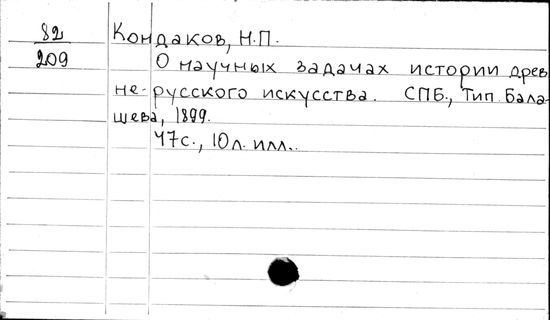 82 Кондаков, Н.П.
209 О научных задачах истории древ
не-русского искусства. СПБ., Тип. Бала-
шева, 1899.
47с., 10л. илл..